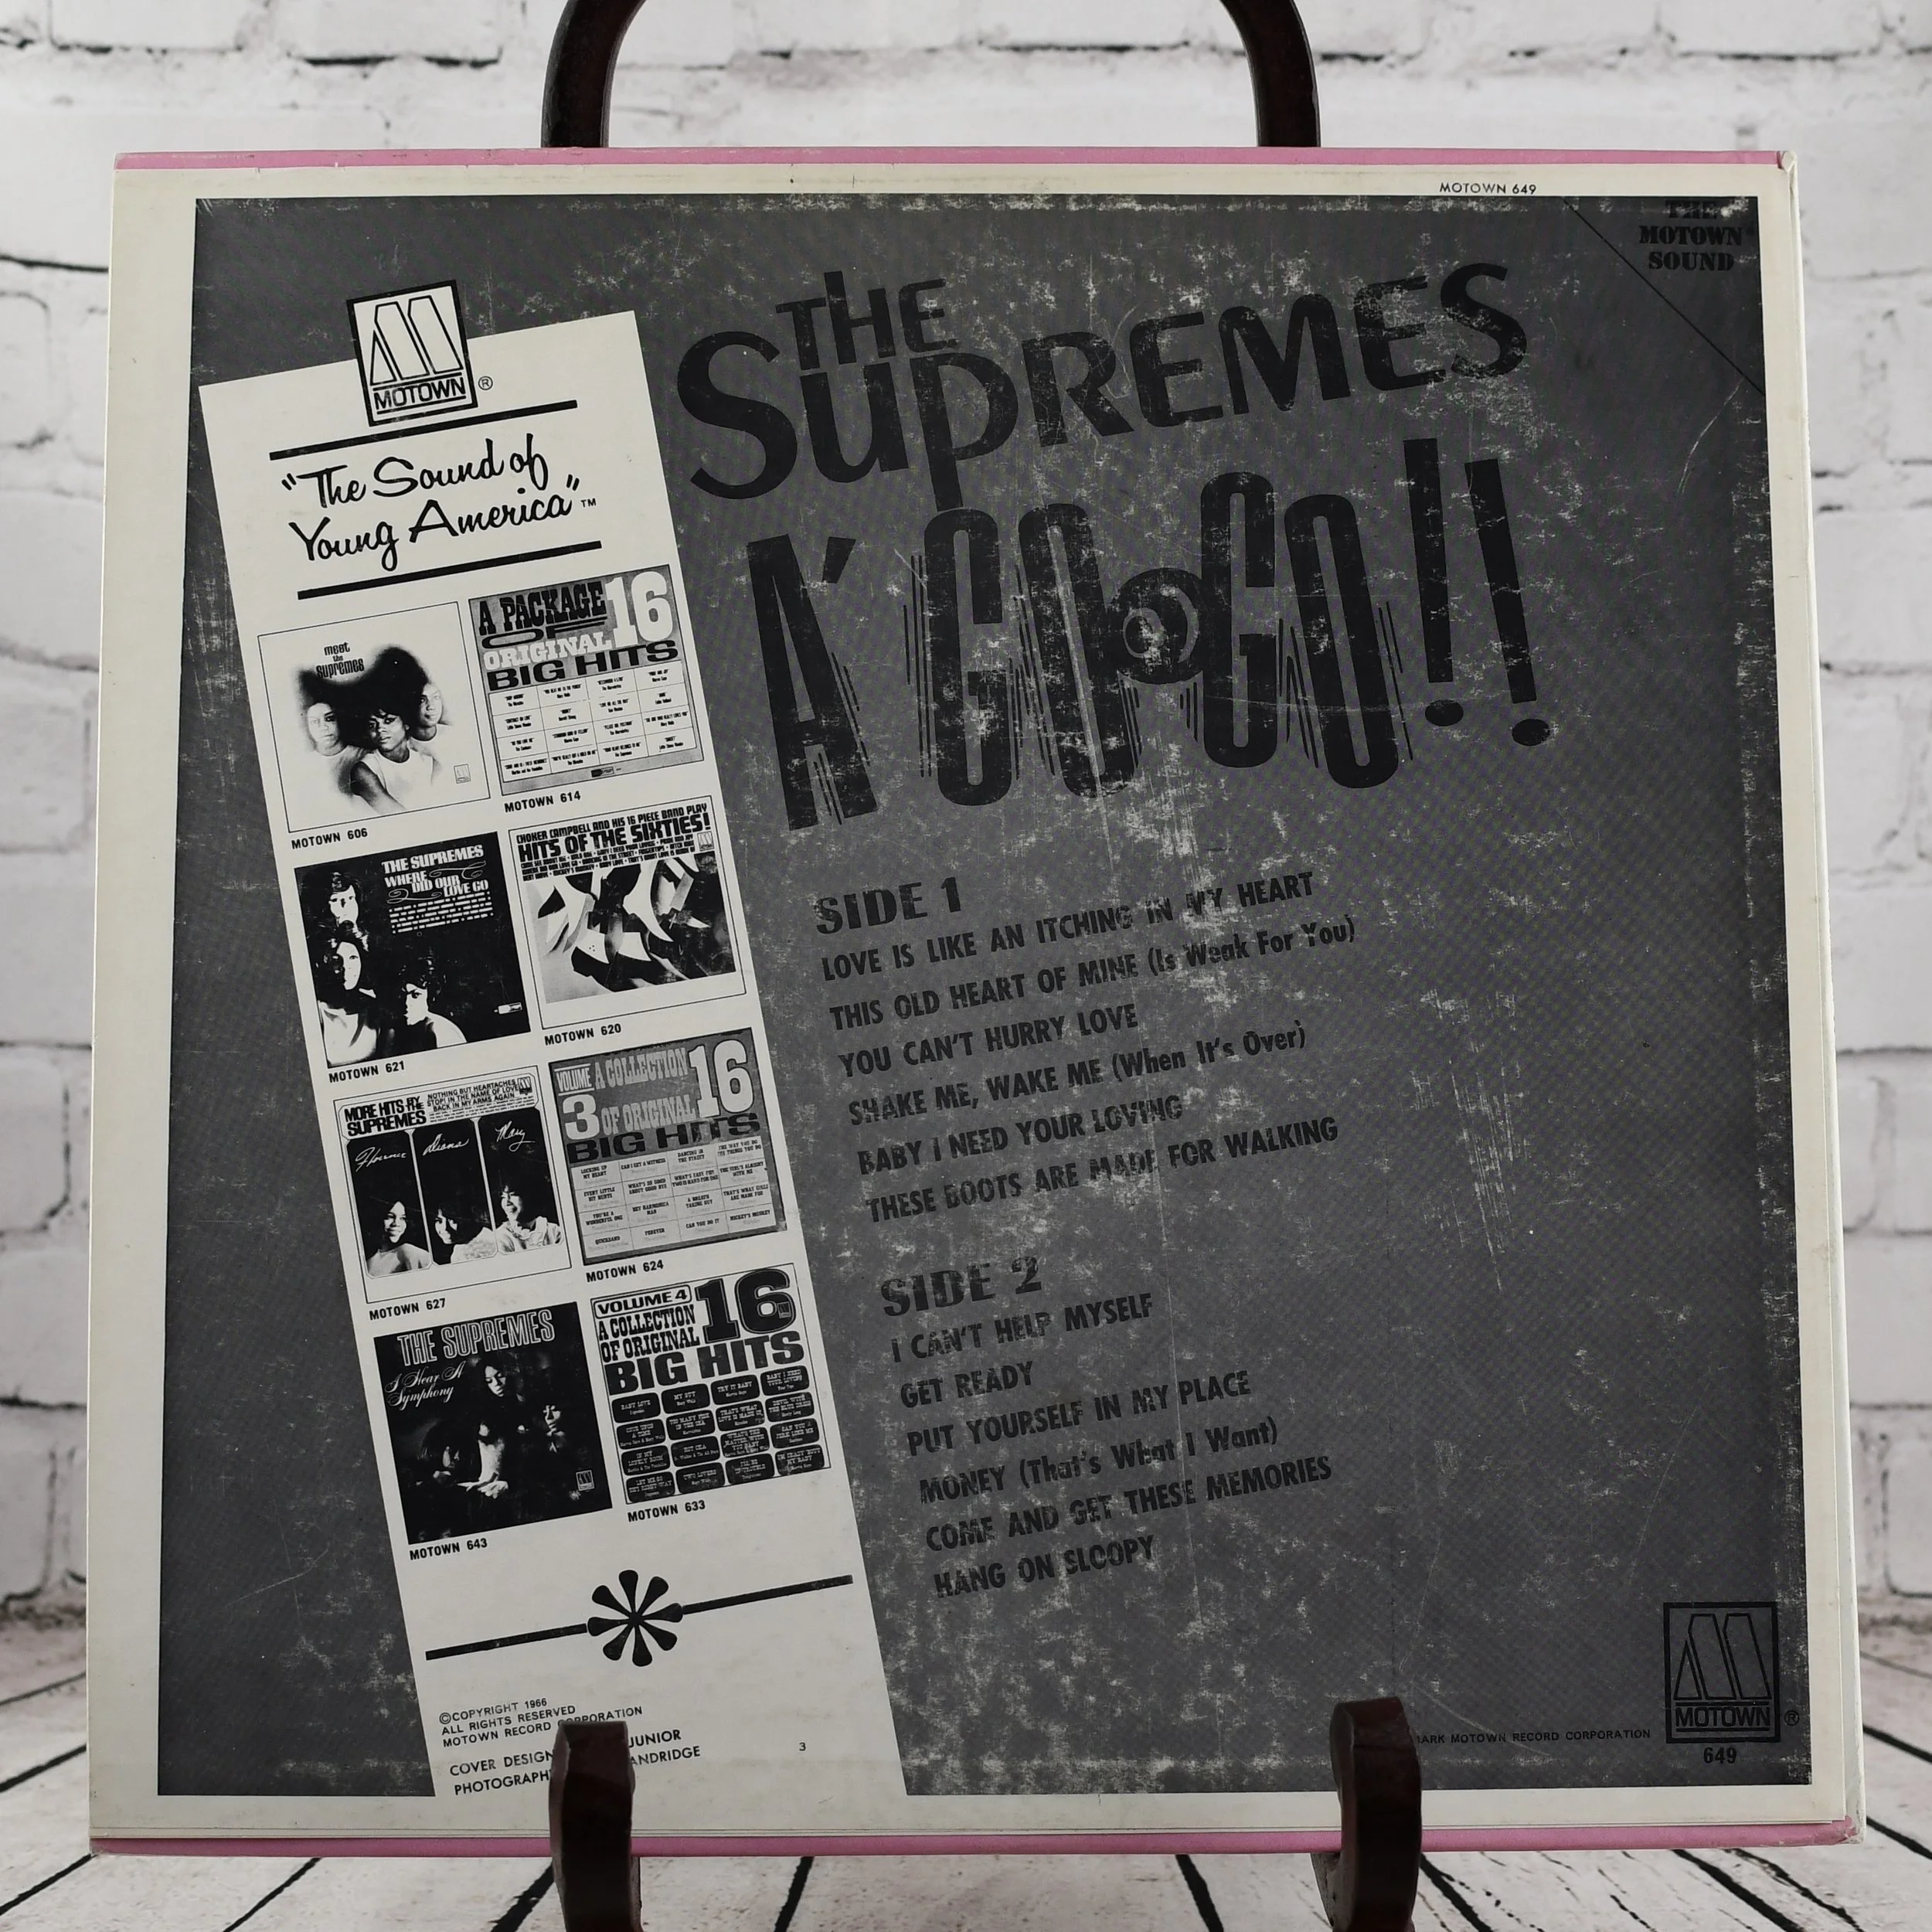 MOTOWN 649
THE
MOTOWN
SOUND
MOTOWN ®
"The Sound of
Young America"™
meet
the
Supremes
MOTOWN 606
A PACKAGE
OF 16
ORIGINAL
BIG HITS
MOTOWN 614
THE SUPREMES
WHERE
DID OUR
LOVE GO
MOTOWN 621
CHOKER CAMPBELL AND HIS 16 PIECE BAND PLAY
HITS OF THE SIXTIES!
MOTOWN 620
MORE HITS BY
SUPREMES
NOTHING BUT HEARTACHES
STOP! IN THE NAME OF LOVE
BACK IN MY ARMS AGAIN
Florence Diana Mary
MOTOWN 627
VOLUME 3
A COLLECTION
OF ORIGINAL 16
BIG HITS
MOTOWN 624
THE SUPREMES
I Hear A
Symphony
MOTOWN 643
VOLUME 4
A COLLECTION
OF ORIGINAL 16
BIG HITS
MOTOWN 633
©COPYRIGHT 1966
ALL RIGHTS RESERVED
MOTOWN RECORD CORPORATION
COVER DESIGN JUNIOR
3
THE
SUPREMES
A' GO-GO!!
SIDE 1
LOVE IS LIKE AN ITCHING IN MY HEART
THIS OLD HEART OF MINE (Is Weak For You)
YOU CAN'T HURRY LOVE
SHAKE ME, WAKE ME (When It's Over)
BABY I NEED YOUR LOVING
THESE BOOTS ARE MADE FOR WALKING
SIDE 2
I CAN'T HELP MYSELF
GET READY
PUT YOURSELF IN MY PLACE
MONEY (That's What I Want)
COME AND GET THESE MEMORIES
HANG ON SLOOPY
MOTOWN RECORD CORPORATION
MOTOWN ®
649